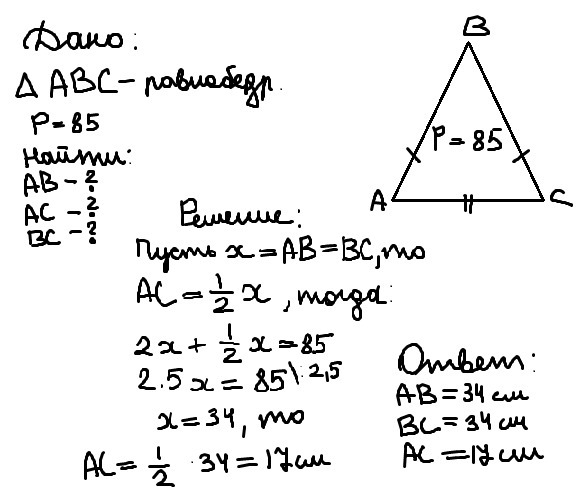 Дано:
Δ ABC – равнобедр.
P = 85
Найти:
AB - ?
AC - ?
BC - ?
B
P = 85
A
C
Решение:
Пусть x = AB = BC, то
AC = 1/2 x , тогда:
2x + 1/2 x = 85
2.5x = 85 \: 2,5
x = 34, то
AC = 1/2 · 34 = 17 см
Ответ:
AB = 34 см
BC = 34 см
AC = 17 см